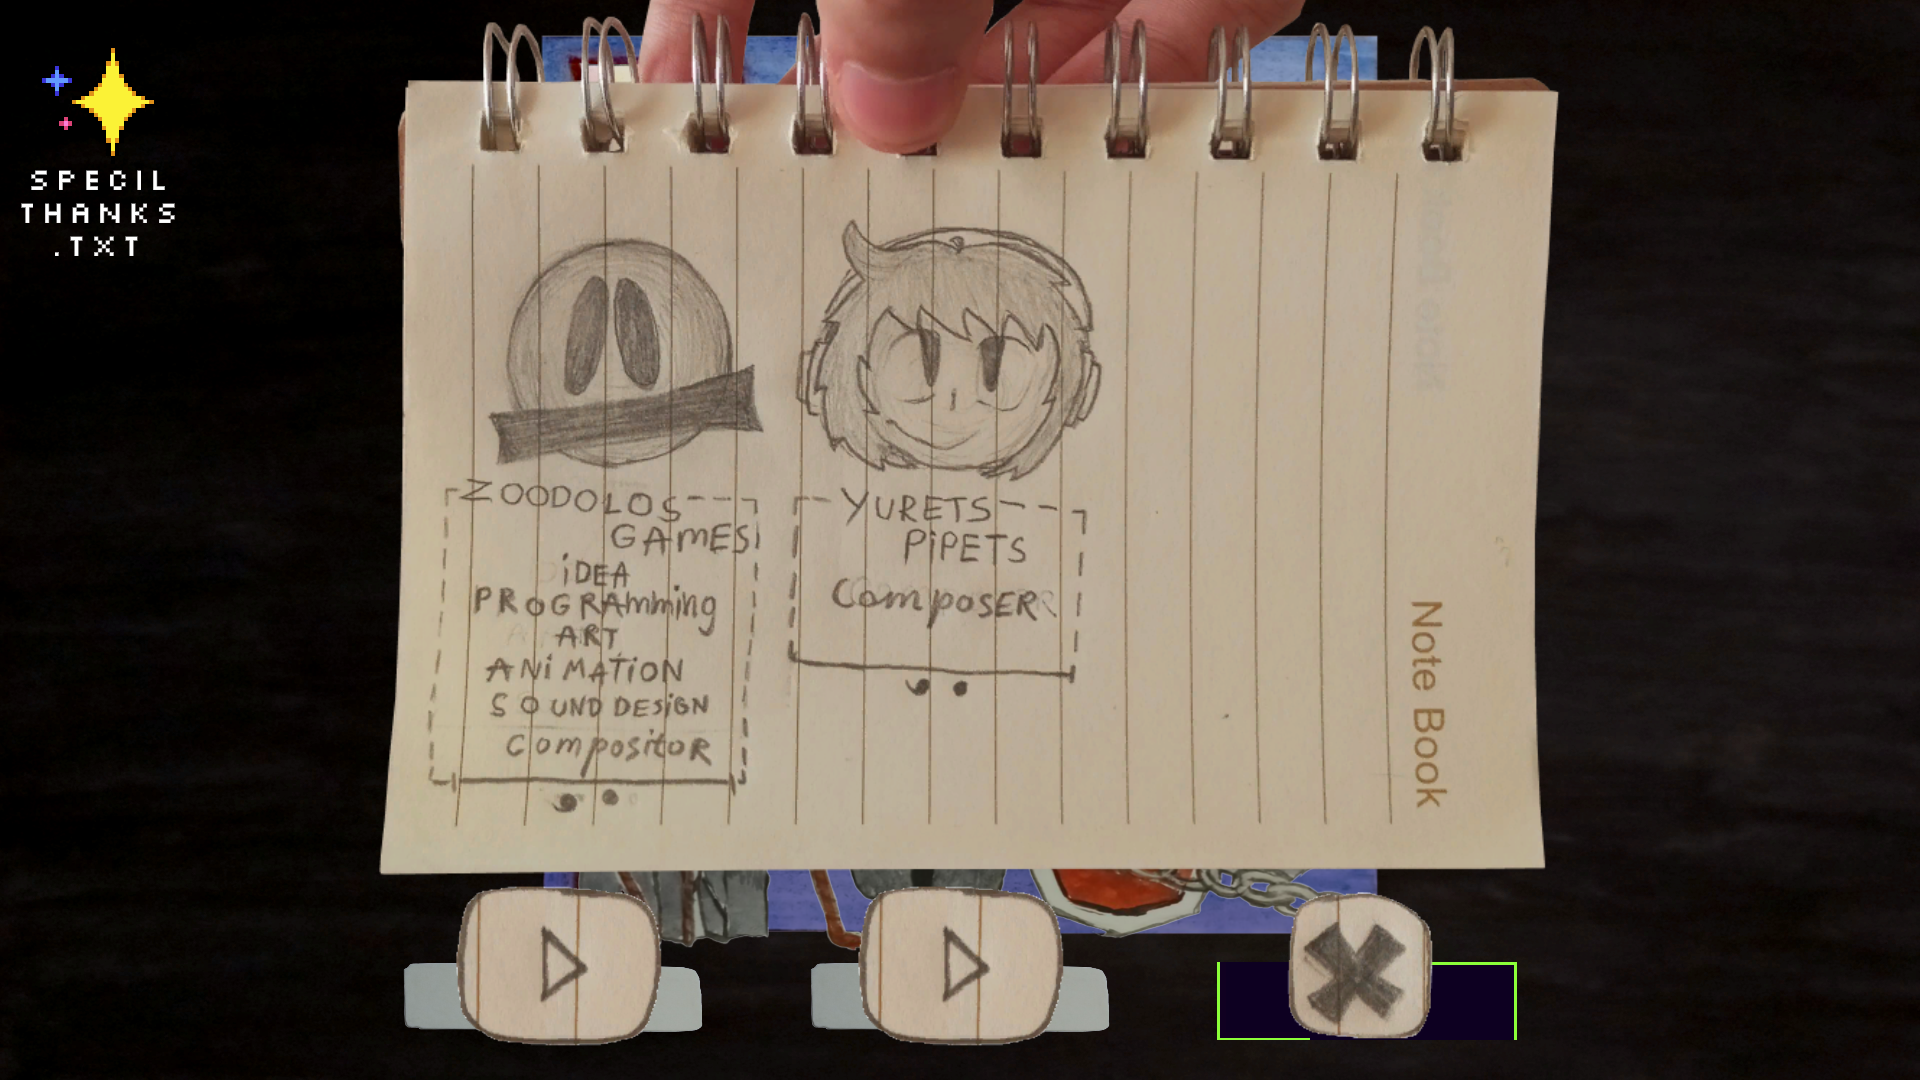 SPECIL
THANKS
.TXT
ZOODOLOS
GAMES
iDEA
PROGRAmming
ART
ANiMATiON
SOUND DESiGN
CompositoR
YURETS
PiPETS
ComposER
Note Book